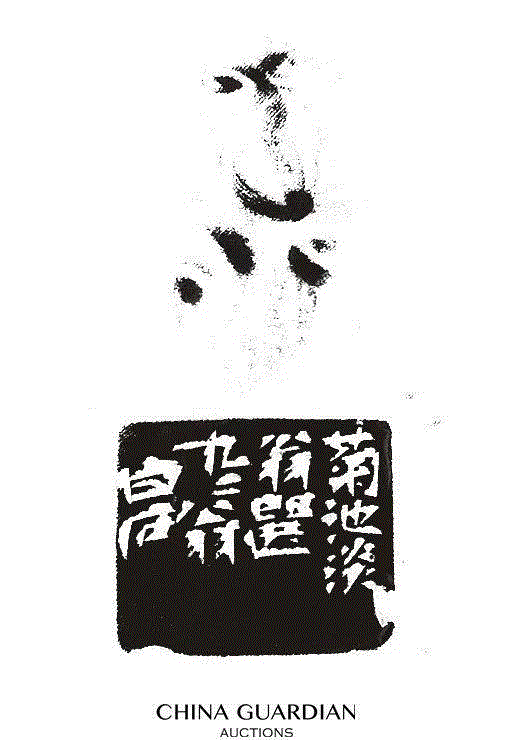 菊池淡
翁選
九二翁
白石
CHINA GUARDIAN
AUCTIONS